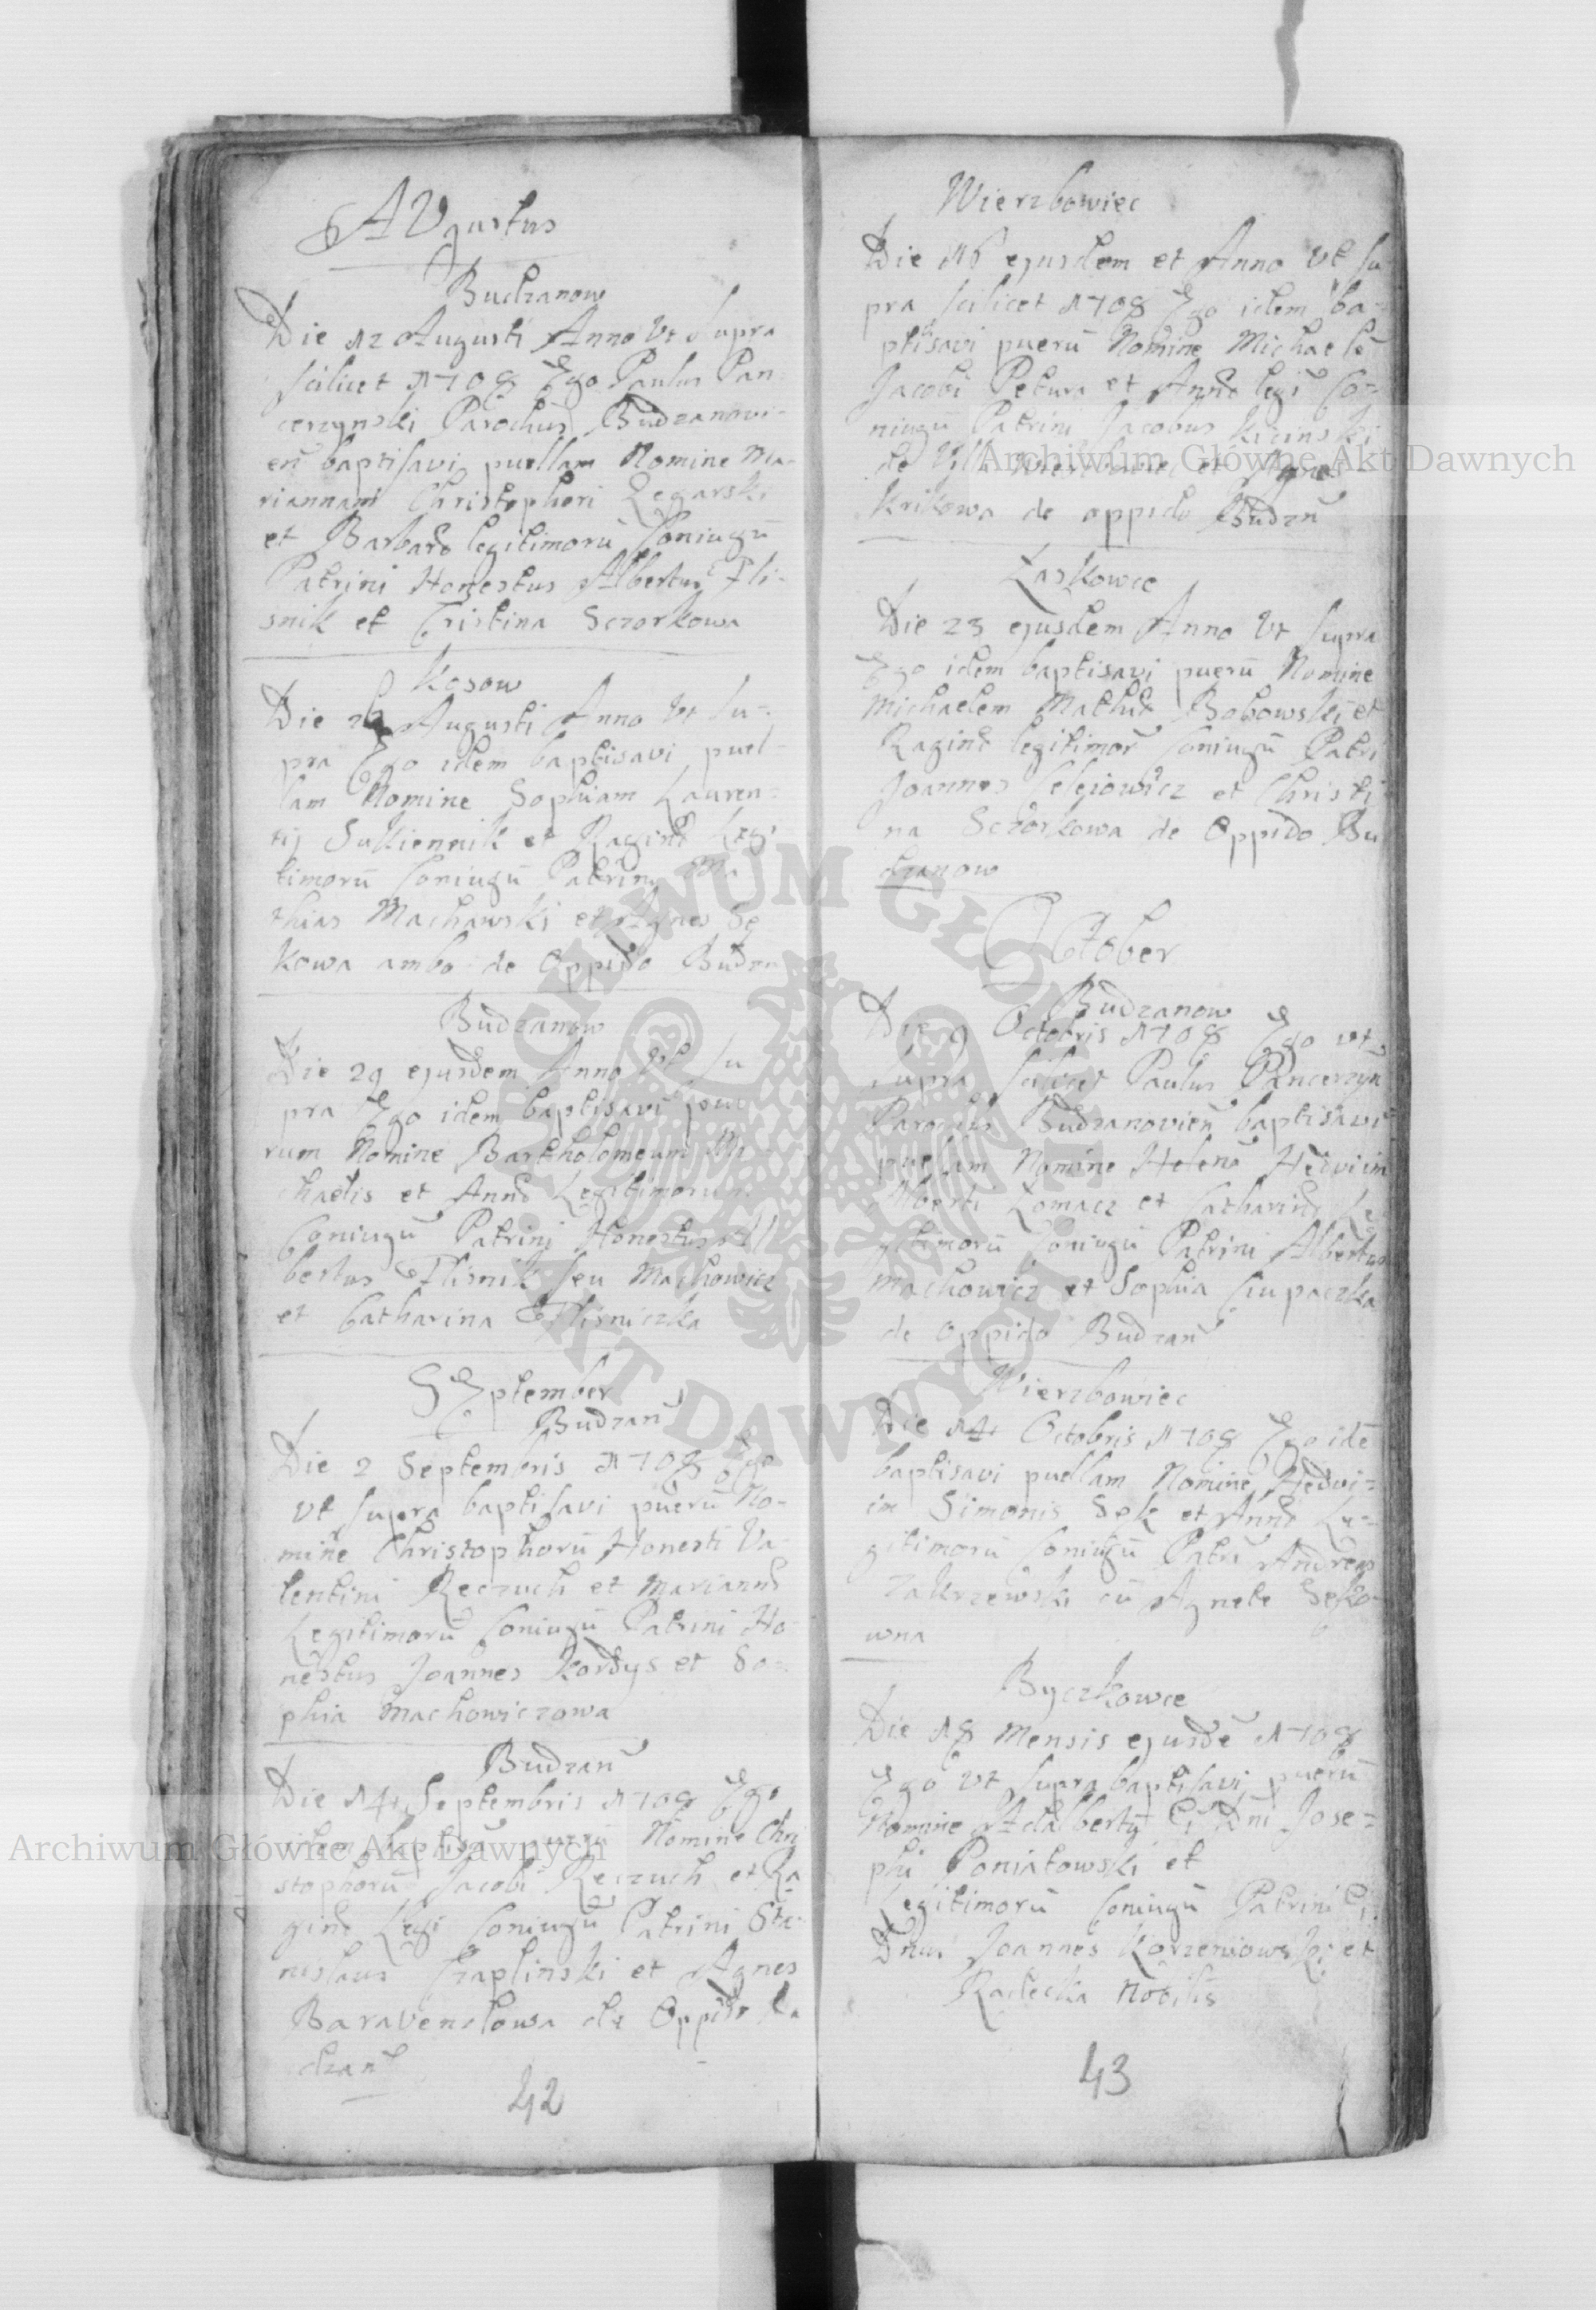 AVgustus
Budzanow
Die 12 Augusti Anno Vt supra
scilicet 1708 Ego Paulus Pan-
cerzynski Parochus Budzanovi-
eñ baptisavi puellam Nomine Ma-
riannam Christophori Zegarski
et Barbaræ legitimorū Coniugū
Patrini Honestus Albertus Fli-
snik et Cristina Sczorkowa
Kosow
Die 26 Augusti Anno Vt Su-
pra Ego idem baptisavi puel-
lam Nomine Sophiam Lauren-
tij Sukiennik et Raginæ Legi
timorū Coniugū Patrini Ma
thias Machawski et Agnes Sę
kowa ambo de Oppido Budzan
Budzanow
Die 29 ejusdem Anno Vt Su
pra Ego idem baptisavi pue
rum Nomine Bartholomeum Mi
chaelis et Annæ Legitimorum
Coniugū Patrini Honestus Al
bertus Flisnik seu Machowicz
et Catharina Flisniczka
SEptember
Budzañ
Die 2 Septembris 1708 Ego
vt supra baptisavi puerū No-
mine Christophorū Honesti Va-
lentini Reczuch et Mariannæ
Legitimorū Coniugū Patrini Ho
nestus Joannes Kordys et So-
phia Machowiczowa
Budzañ
Die 14 Septembris 1708 Ego
idem puerū Nomine Chri
stophorū Jacobi Reczuch et Ra
ginæ Legi Coniugū Patrini Sta-
nislaus Czaplinski et Agnes
de Oppido Bu
dzañ
42
Wierzbowiec
Die 16 ejusdem et Anno Vt su
pra scilicet 1708 Ego idem ba-
ptisavi puerū Nomine Michaelē
Jacobi Petura et Annæ legi Co-
niugū Patrini Jacobus Kicinski
de Villa Wierzbowiec et Agnes
Krikowa de oppido Budzñ
Laskowce
Die 23 ejusdem Anno Vt Supra
Ego idem baptisavi puerū Nomine
Michaelem Mathiæ Bobowski et
Raginæ legitimor Coniugū Patri
Joannes et Christi
na Sczorkowa de Oppido Bu
dzanow
OCtober
Budzanow
Die 9 Octobris 1708 Ego vt
Supra scilicet Paulus Pancerzyn
Parochus Budzanovieñ baptisavi
puellam Nomine Helenā Hedviim
Alberti Lomacz et Catharinæ Le
gitimorū Coniugū Patrini Albertus
Machowicz et Sophia Ciupaczka
de Oppido Budzañ
Wierzbowiec
Die 14 Octobris 1708 Ego idē
baptisavi puellam Nomine Hedvi-
im Simonis Sęk et Annæ Le-
gitimorū Coniugū Patri Andreas
Zakrzewski cū Agnete Sęko-
wna
Byczkowce
Die 18 Mensis ejusdē 1708
Ego Vt supra baptisavi puerū
Nomine Adalbertū Dni Jose-
phi Poniatowski et
Legitimorū Coniugū Patrini
Dnus Joannes Korzeniowski et
Radecka Nobilis
43
Archiwum Główne Akt Dawnych
Archiwum Główne Akt Dawnych
ARCHIWUM GŁÓWNE AKT DAWNYCH